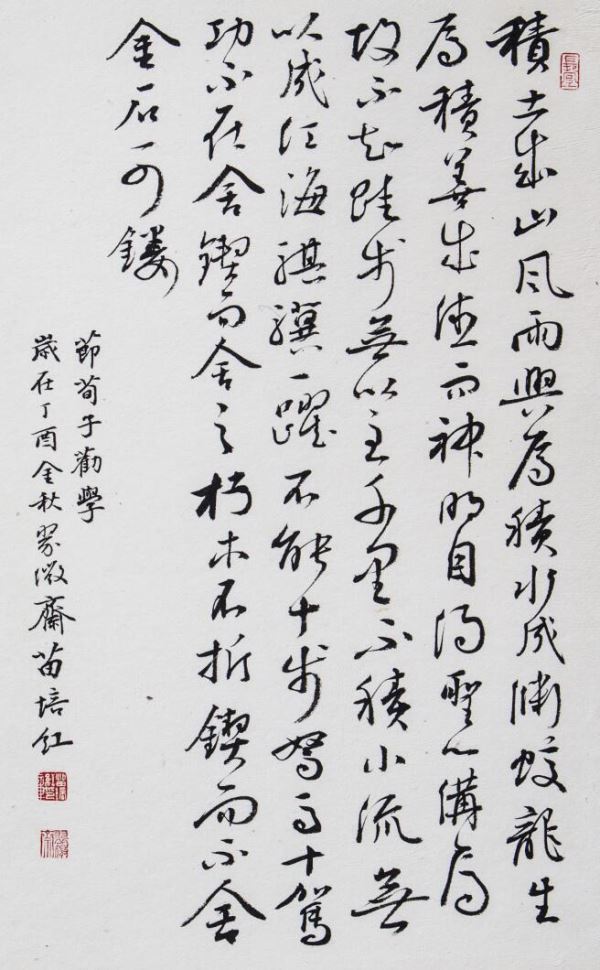 積土成山風雨興焉積水成淵蛟龍生
焉積善成德而神明自得聖心備焉
故不積跬步無以至千里不積小流無
以成江海騏驥一躍不能十步駑馬十駕
功不在舍鍥而舍之朽木不折鍥而不舍
金石可鏤
節荀子勸學
歲在丁酉金秋翠微齋苗培紅